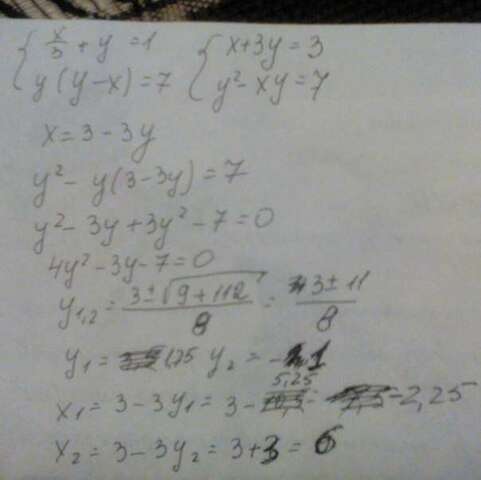 { x/3 + y = 1 { x+3y = 3
y(y-x) = 7 y² - xy = 7
x = 3 - 3y
y² - y(3-3y) = 7
y² - 3y + 3y² - 7 = 0
4y² - 3y - 7 = 0
y₁,₂ = (3 ± √(9+112))/8 = (3 ± 11)/8
y₁ = 1,75 y₂ = -1
x₁ = 3 - 3y₁ = 3 - 5,25 = -2,25
x₂ = 3 - 3y₂ = 3+3 = 6